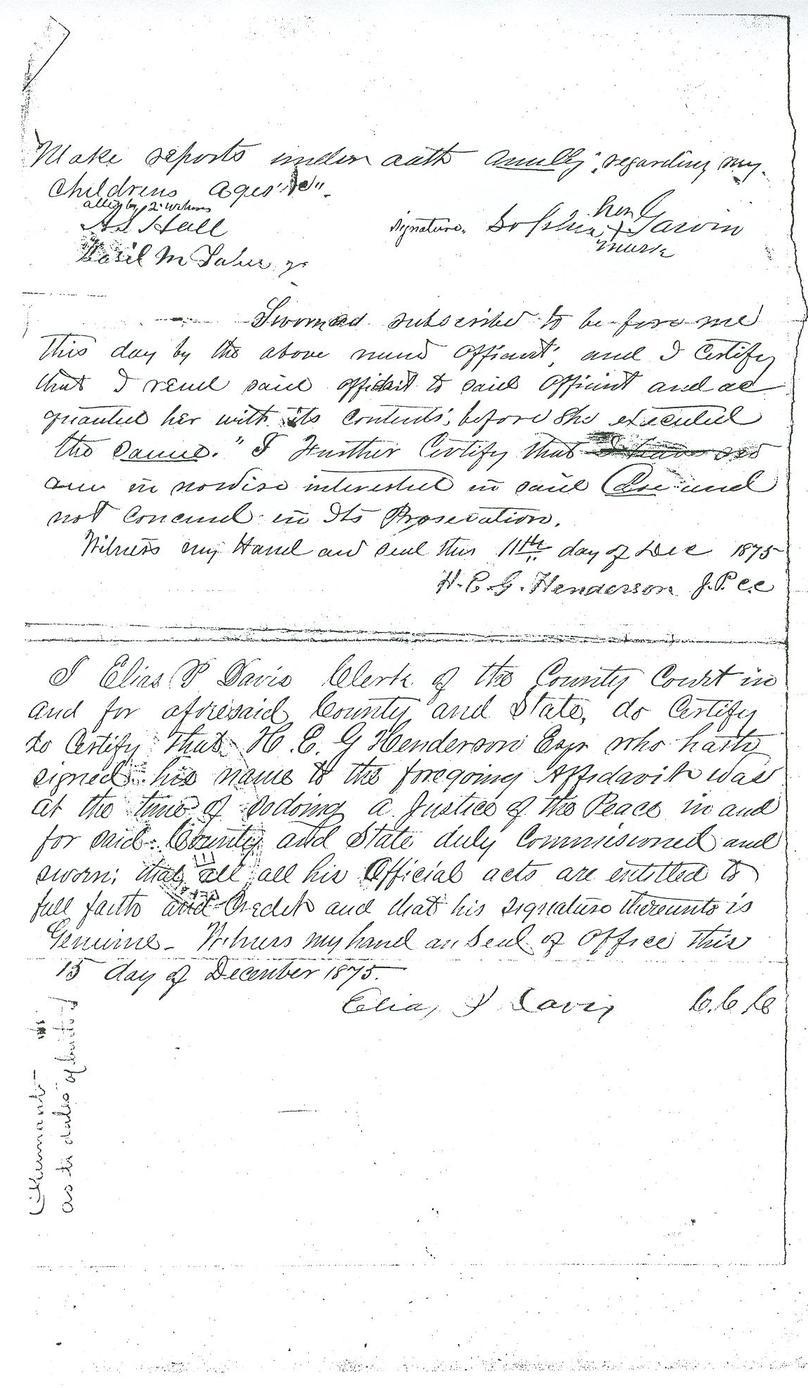 Make reports under oath annully; regarding my
childrens ages "&c".
attest by 2 witness
A S Hall
signature. Sophia her X mark Garvin
Basil M Taber jr
Sworn and subscribed to before me
this day by the above named affiant; and I certify
that I read said affidavit to said affiant and ac
quanted her with its contents; before she executed
the same." I Further Certify that
am in nowise interested in said Case and
not concened in Its Prosecution.
Witness my Hand and seal this 11th day of Dec 1875
H. E. G. Henderson J. P. C C
I Elias P Davis Clerk of the County Court in
and for aforesaid County and State, do Certify
to Certify that H. E. G Henderson Esqr who hath
signed his name to the foregoing Affidavit was
at the time of sodoing a Justice of the Peace in and
for said County and State duly Commissioned and
sworn; that all all his Official acts are entitled to
full faith and Credit and that his signature thereunto is
Genuine - Witness my hand an Seal of Office this
15 day of December 1875.
Elias P Davis C. C. C
Claimant
as to dates of births